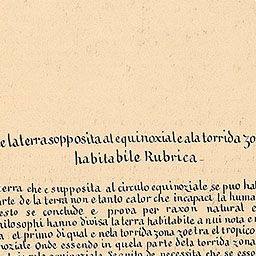 e la terra sopposita al equinoxiale a la torrida zo
habitabile Rubrica
terra che e supposita al circulo equinoziale se puo hab
arte de la terra non e tanto calor che incapaci la huma
esto se conclude e prova per raxon natural c
hilosophi hanno divisa la terra habitabile a nui nota e n
a el primo di qual e nela torrida zona zoe tra el tropico
noziale Onde essendo in quela parte dela torrida zona